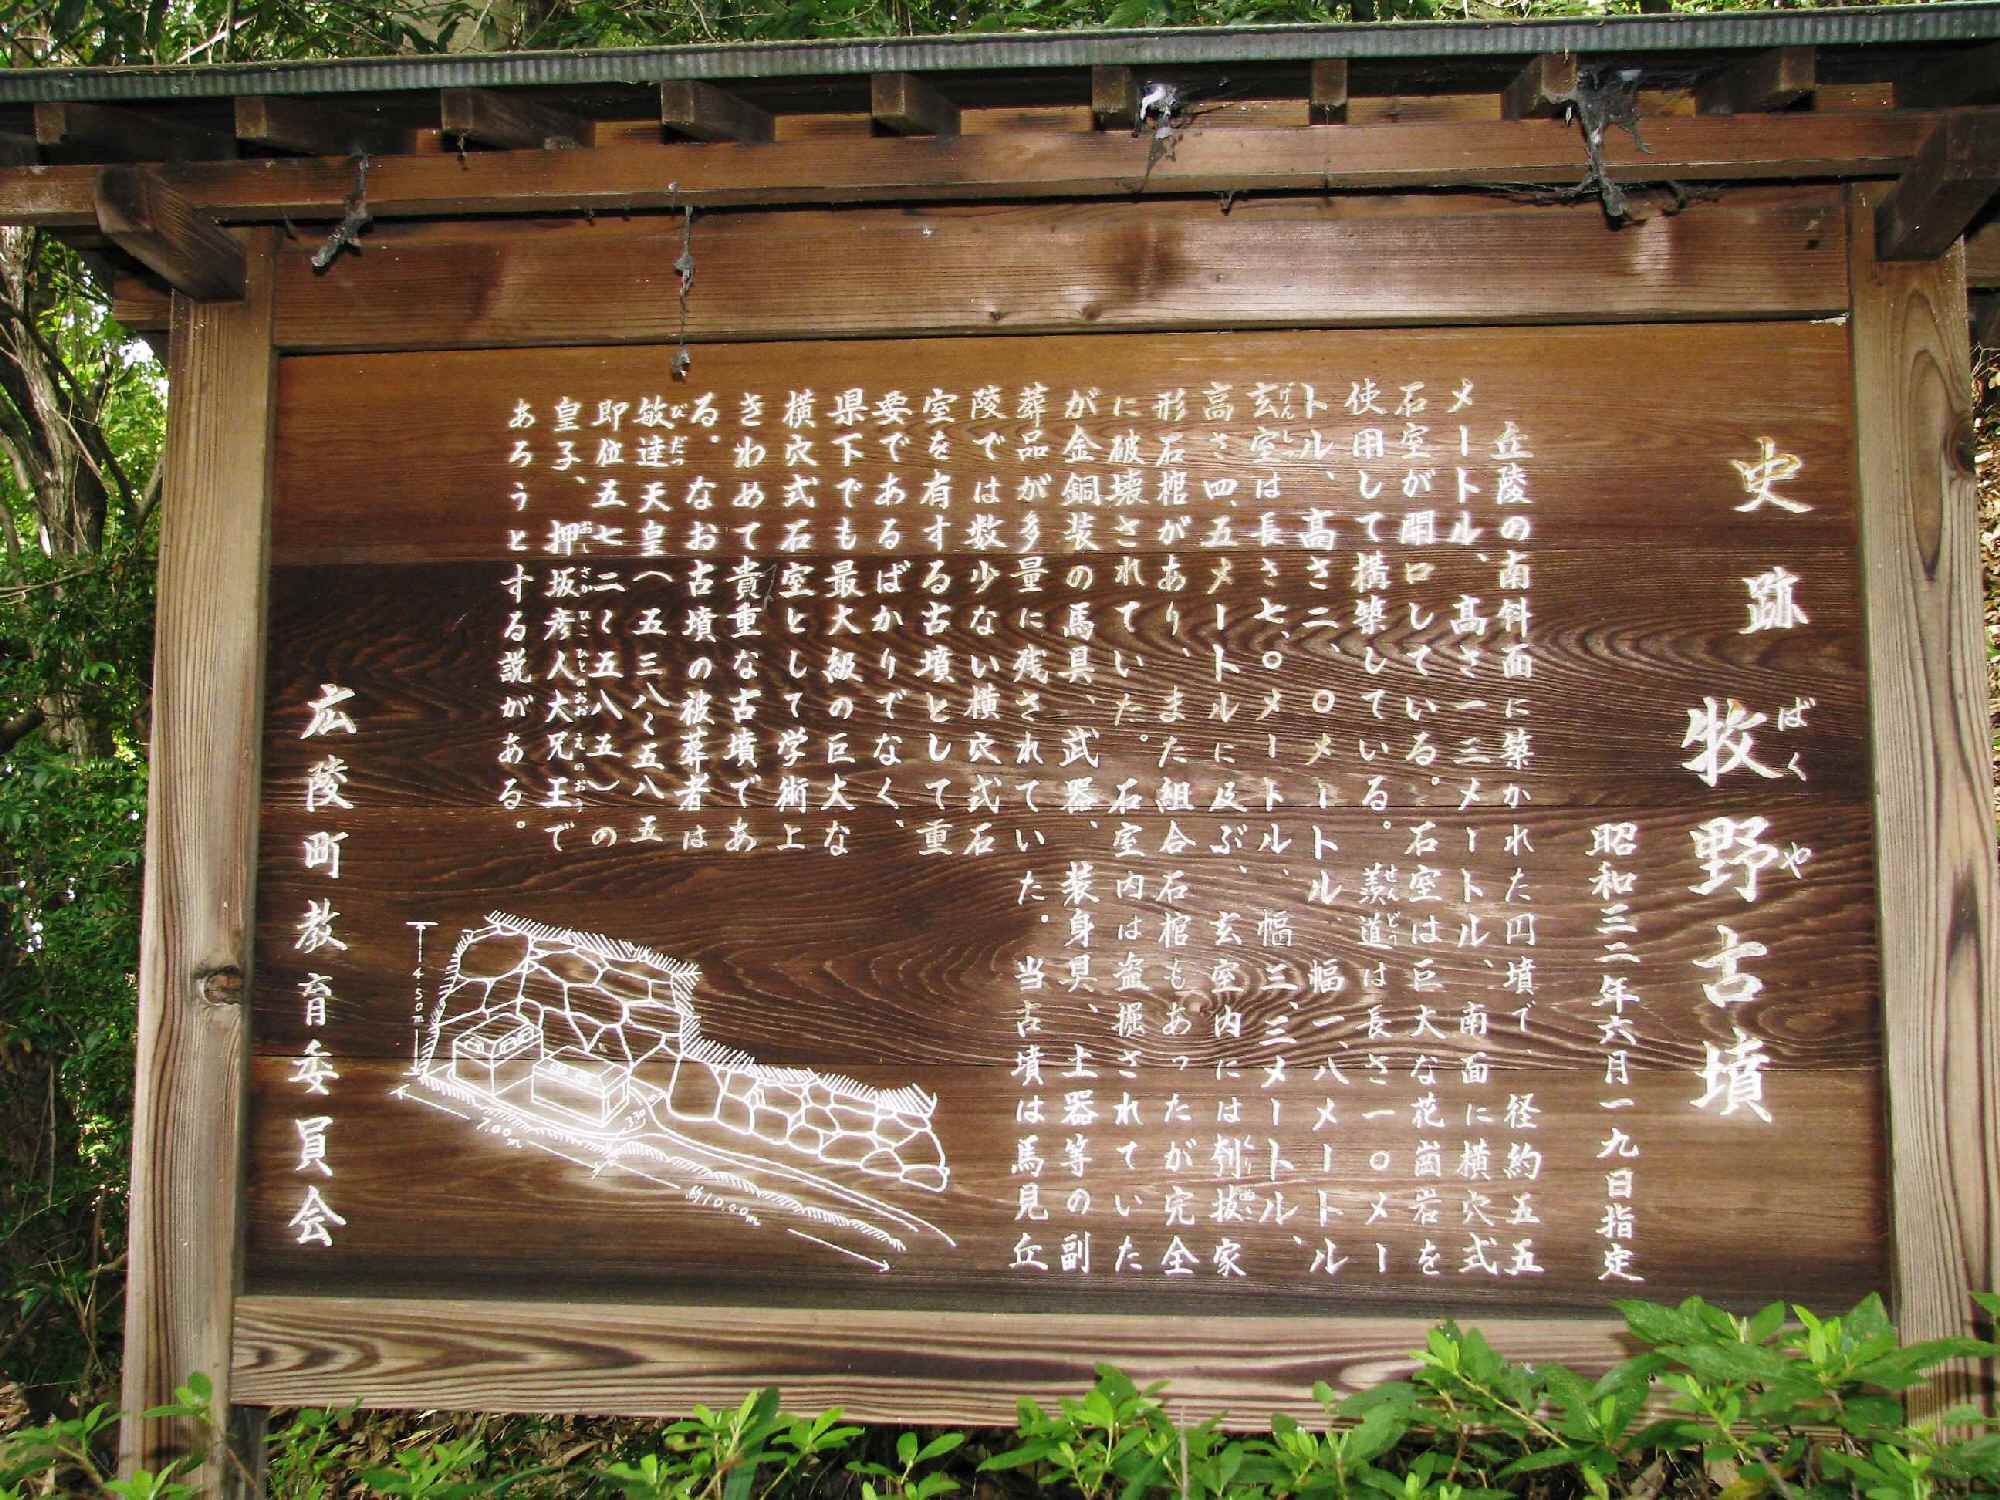 史跡 牧野古墳
ばくや
昭和三二年六月一九日指定
丘陵の南斜面に築かれた円墳で、径約五五
メートル、高さ一三メートル、南面に横穴式
石室が開口している。石室は巨大な花崗岩を
使用して構築している。羨道は長さ一〇メー
せんどう
トル、高さ二、〇メートル、幅一、八メートル
玄室は長さ七、〇メートル、幅三、三メートル、
げんしつ
高さ四、五メートルに及ぶ、玄室内には刳抜家
くりぬき
形石棺があり、また組合石棺もあったが完全
に破壊されていた。石室内は盗掘されていた
が金銅装の馬具、武器、装身具、土器等の副
葬品が多量に残されていた。当古墳は馬見丘
陵では数少ない横穴式石
室を有する古墳として重
要であるばかりでなく、
県下でも最大級の巨大な
横穴式石室として学術上
きわめて貴重な古墳であ
る。なお古墳の被葬者は
敏達天皇（五三八〜五八五
びだつ
即位五七二〜五八五）の
皇子、押坂彦人大兄王で
おしさかひこひとのおおえのおう
あろうとする説がある。
広陵町教育委員会
4.50m
7.00m
3.30m
約10.00m